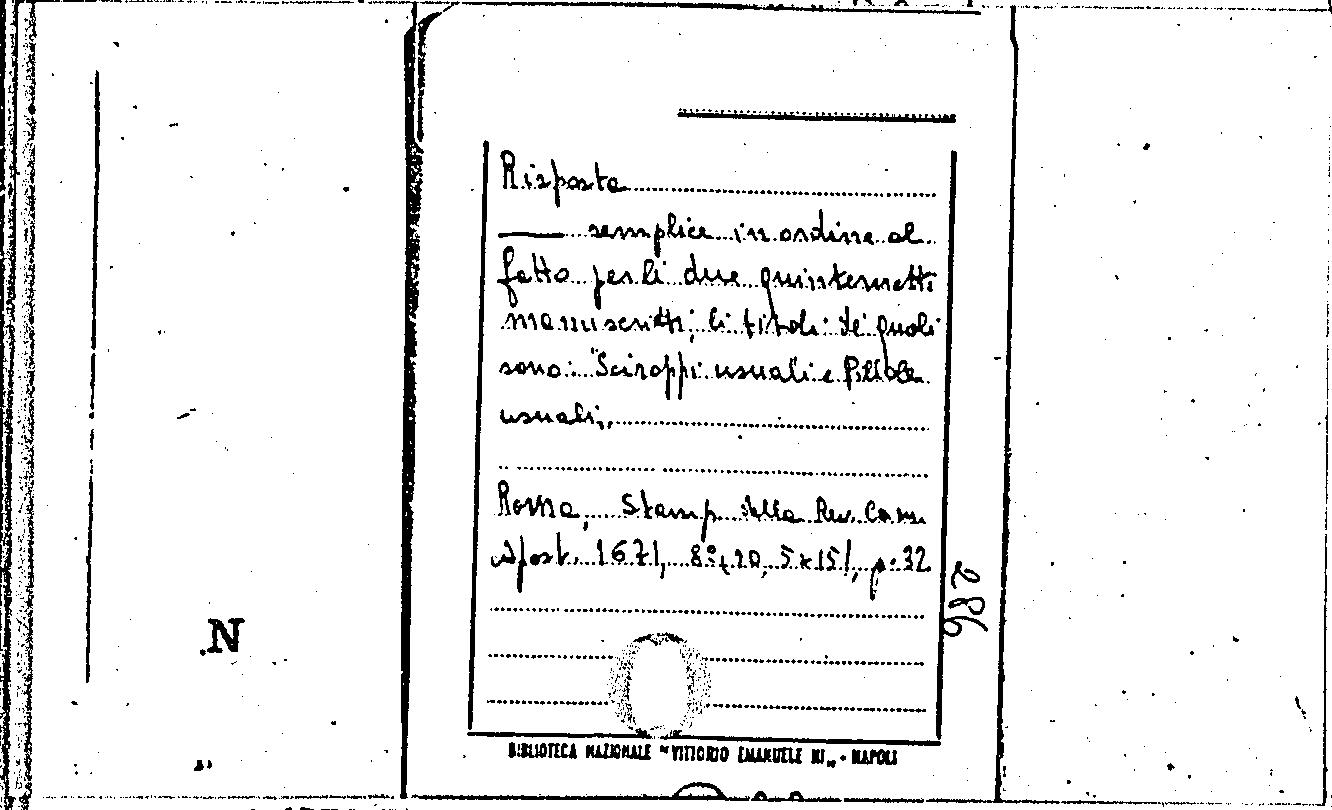 Risposta
— semplice in ordine al
fatto per li due quinternetti
manuscritti, li titoli de' quali
sono: "Sciroppi usuali e Pillole
usuali,,
Roma, Stamp della Rev. Cam.
Apost. 1671, 8°, 20,5x15/, p. 32
286
N
BIBLIOTECA NAZIONALE "VITTORIO EMANUELE III„ - NAPOLI